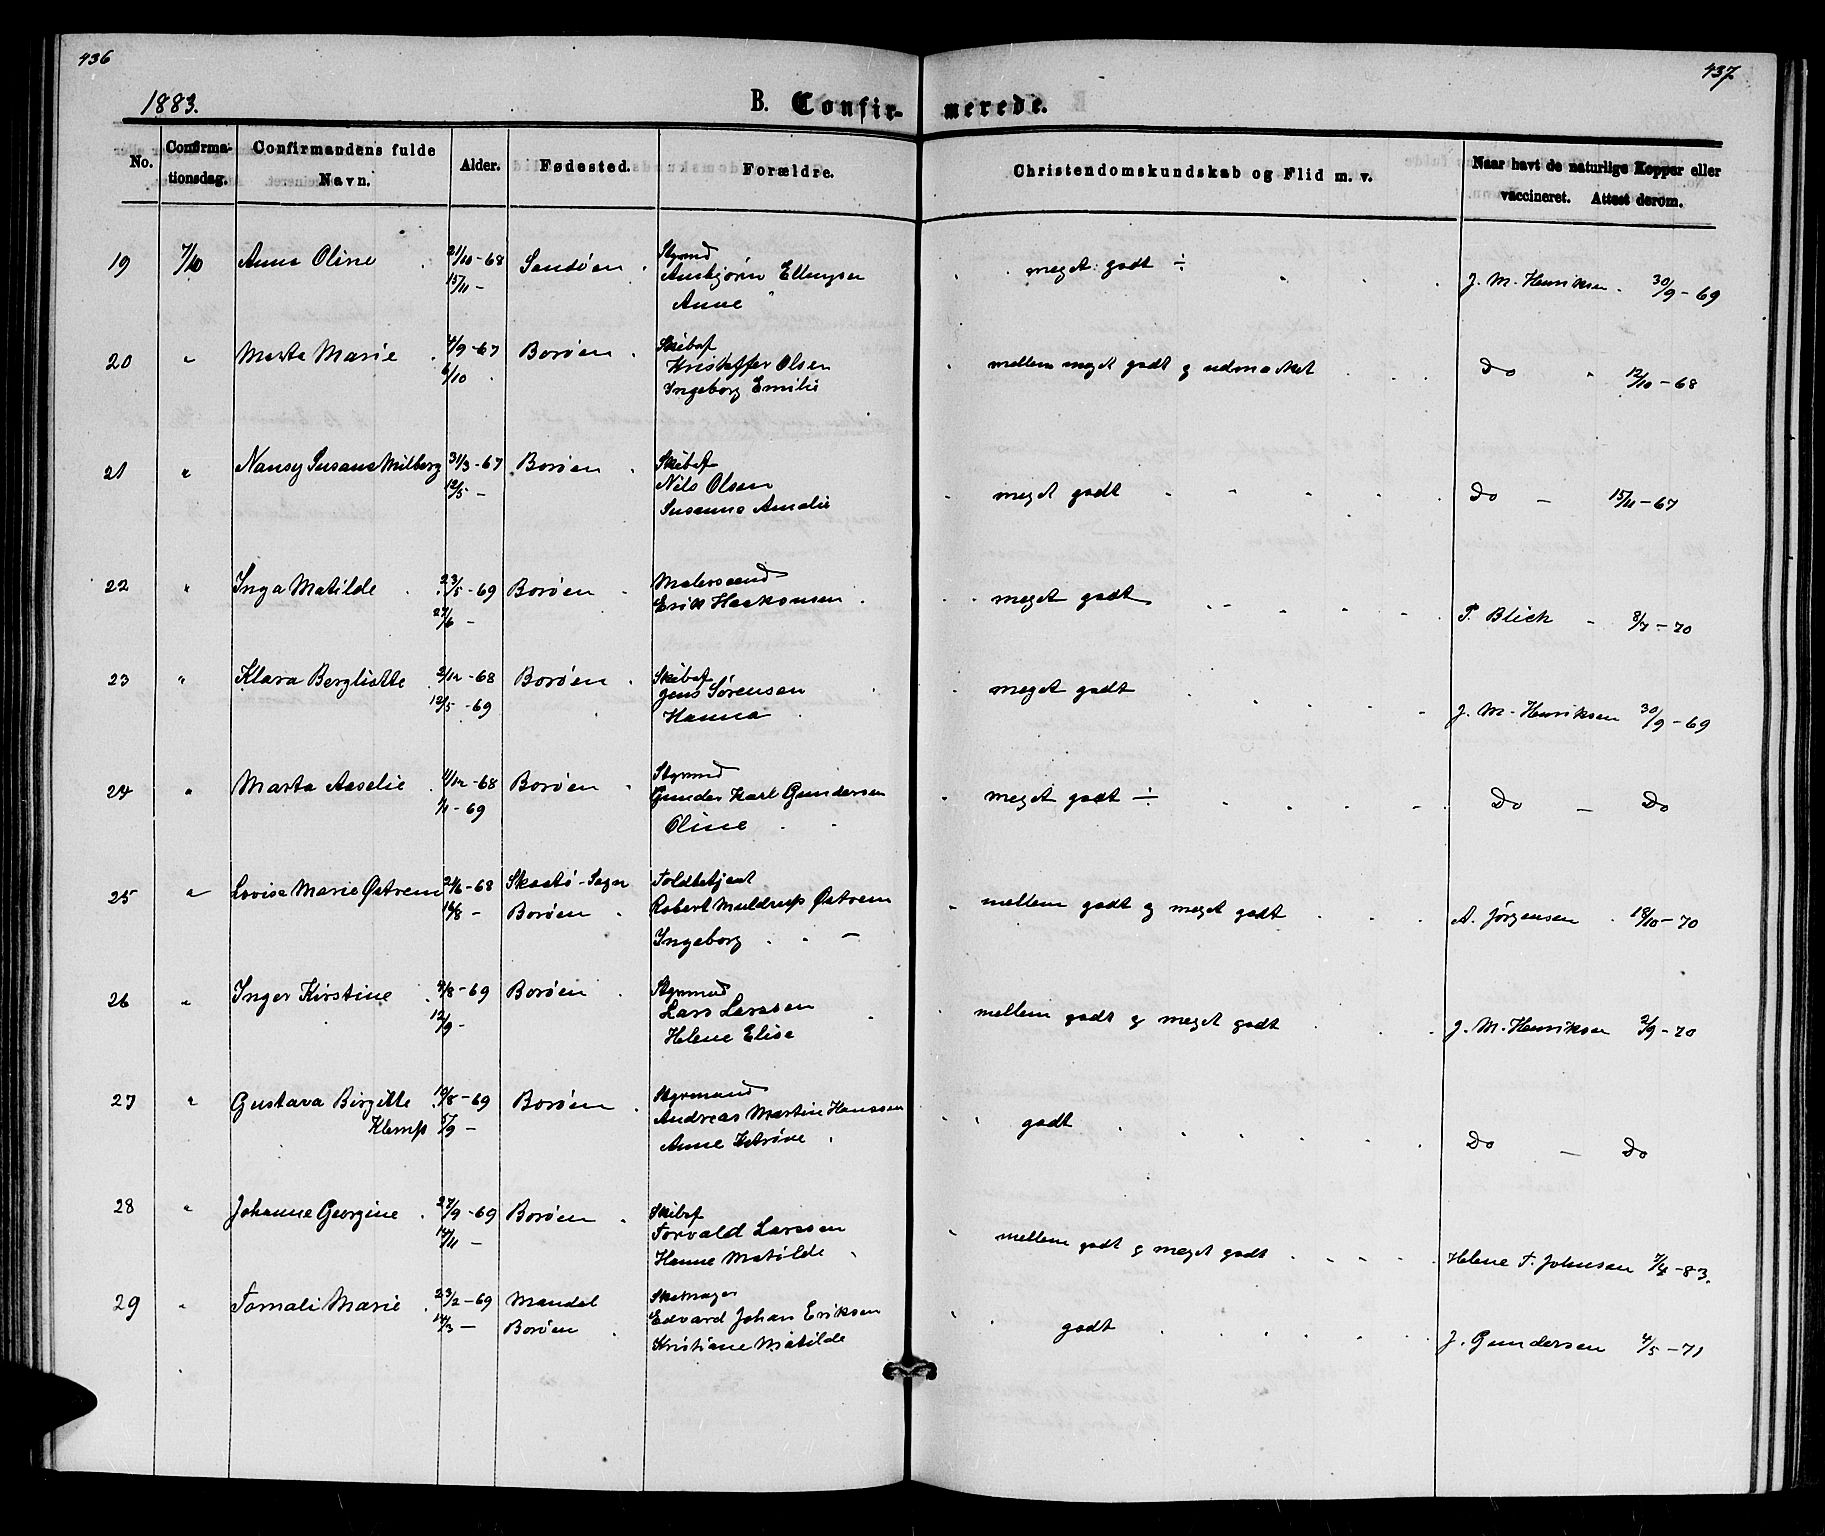 436
437
1883.
B. Confir-
merede.
No.
Confirma-
tionsdag.
Confirmandens fulde
Navn.
Alder.
Fødested.
Forældre.
Christendomskundskab og Flid m. v.
Naar havt de naturlige Kopper eller
vaccineret. Attest derom.
19 7/10 Anne Oline 21/10-68 Sandøen Styrmd
15/11 - Anskjørn Ellingsen
Anne "
meget godt ÷ J. M. Henriksen 30/9-69
20 " Marta Marie 4/9-67 Borøen Skibsf
6/10 Kristoffer Olsen
Ingeborg Emilie
mellem meget godt og udmærket Do " 12/10-68
21 " Nansy Susana Milberg 31/3-67 Borøen Skibsf
12/5 - Nils Olsen
Susanne Amalie
meget godt Do - 15/11-67
22 " Inga Matilde 23/5-69 Borøen Matersmd
27/6 - Erik Haakonsen
meget godt P. Blich - 8/7-70
23 " Klara Bergliotte 2/12-68 Borøen Skibsf
12/5-69 Jens Sørensen
Hanna
meget godt J. M. Henriksen 30/9-69
24 " Marta Aaselie 11/12-68 Borøen Styrmd
1/1-69 Gunder Karl Gundersen
Oline
meget godt ÷ Do - Do
25 " Lovise Marie Østrem 24/6-68 Skaatø-Sogn Toldbetjent
16/8 - Borøen Robert Muldrup Østrem
Ingeborg -
mellem godt og meget godt A. Jørgensen 18/10-70
26 " Inger Kirstine 4/8-69 Borøen Styrmnd
12/9 - Lars Larssen
Helene Elise
mellem godt og meget godt J. M. Henriksen 2/9-70
27 " Gustava Birgitte 10/8-69 Borøen Styrmand
Klemp 5/9 - Andreas Martin Hanssen
Anne
godt Do - Do
28 " Johanne Georgine 27/9-69 Borøen Skibsf
14/11 - Torvald Larssen
Hanne Matilde
mellem godt og meget godt Helene T. Johnsen 7/4-83.
29 " Tomali Marie 23/2-69 Mandal Skomager
14/3 - Borøen Edvard Johan Eriksen
Kristiane Matilde
godt J. Gundersen 4/5-71